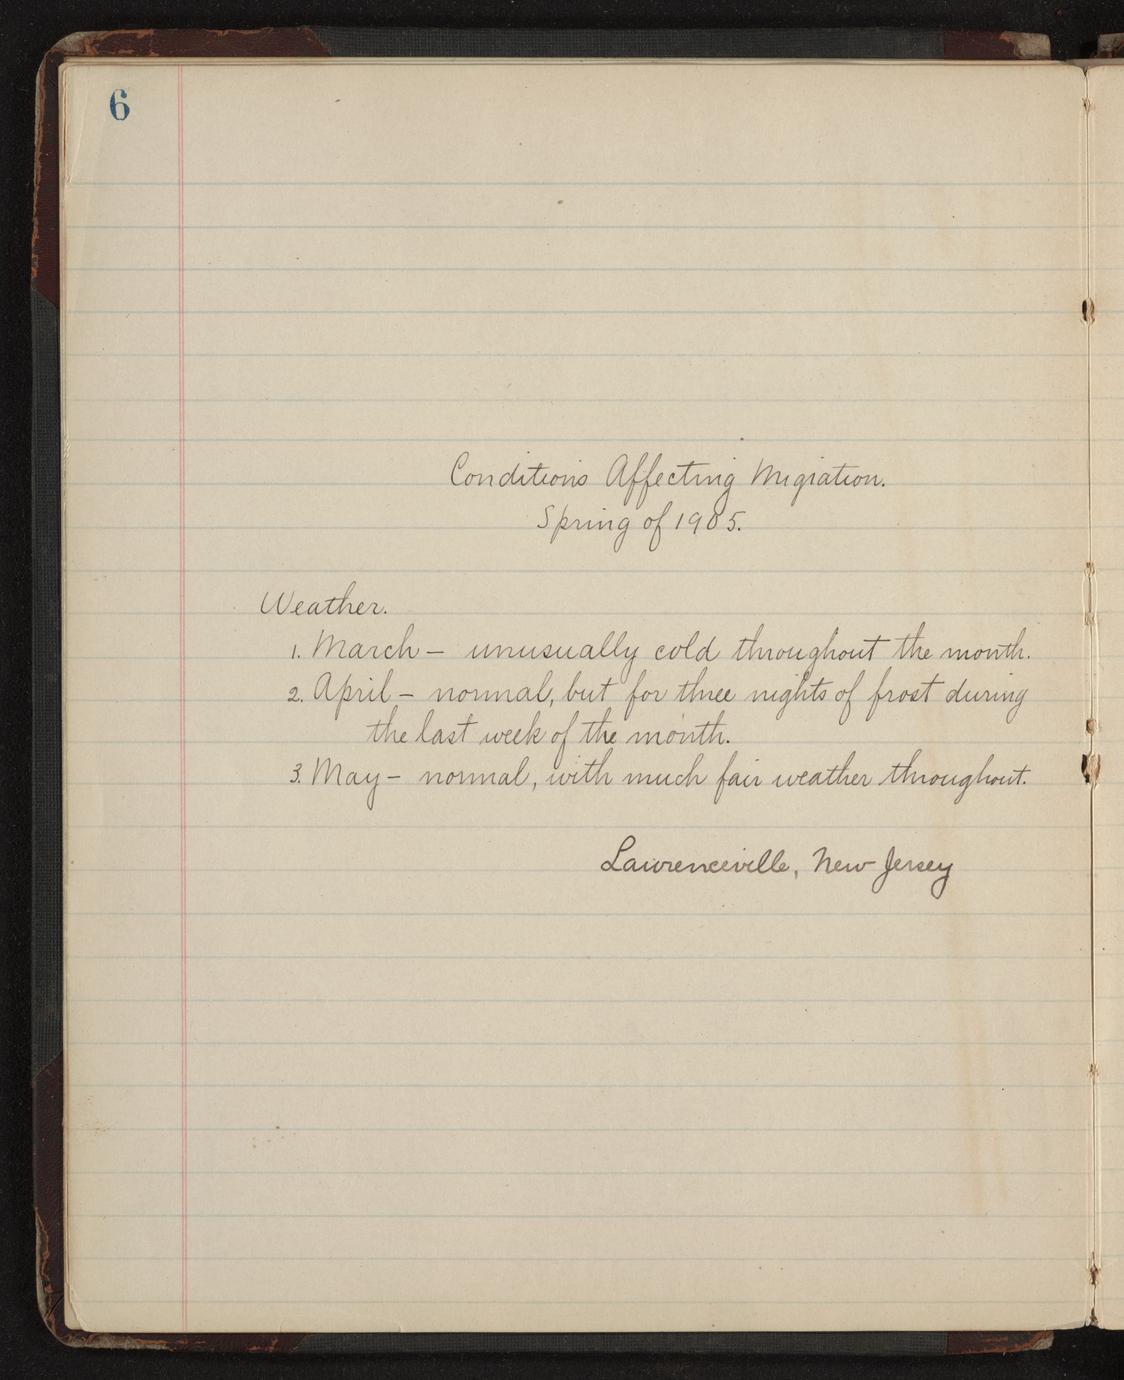 6
Conditions Affecting Migration.
Spring of 1905.
Weather.
1. March – unusually cold throughout the month.
2. April – normal, but for three nights of frost during
the last week of the month.
3. May – normal, with much fair weather throughout.
Lawrenceville, New Jersey